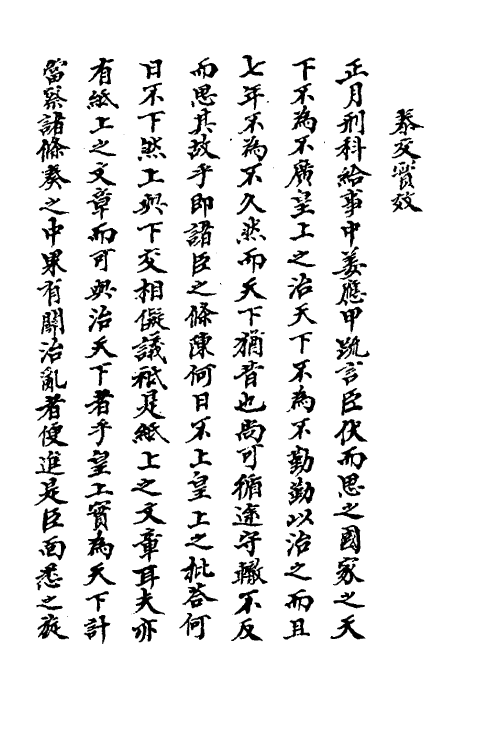 泰交實效
正月刑科給事中姜應甲疏言臣伏而思之國家之天
下不為不廣皇上之治天下不為不勤勤以治之而且
七年不為不久然而天下猶昔也尚可循途守轍不反
而思其故乎即諸臣之條陳何日不上皇上之批荅何
日不下然上與下交相儗議祗是紙上之文章耳夫亦
有紙上之文章而可與治天下者乎皇上實為天下計
當察諸條奏之中果有關治亂者便進是臣面悉之旋